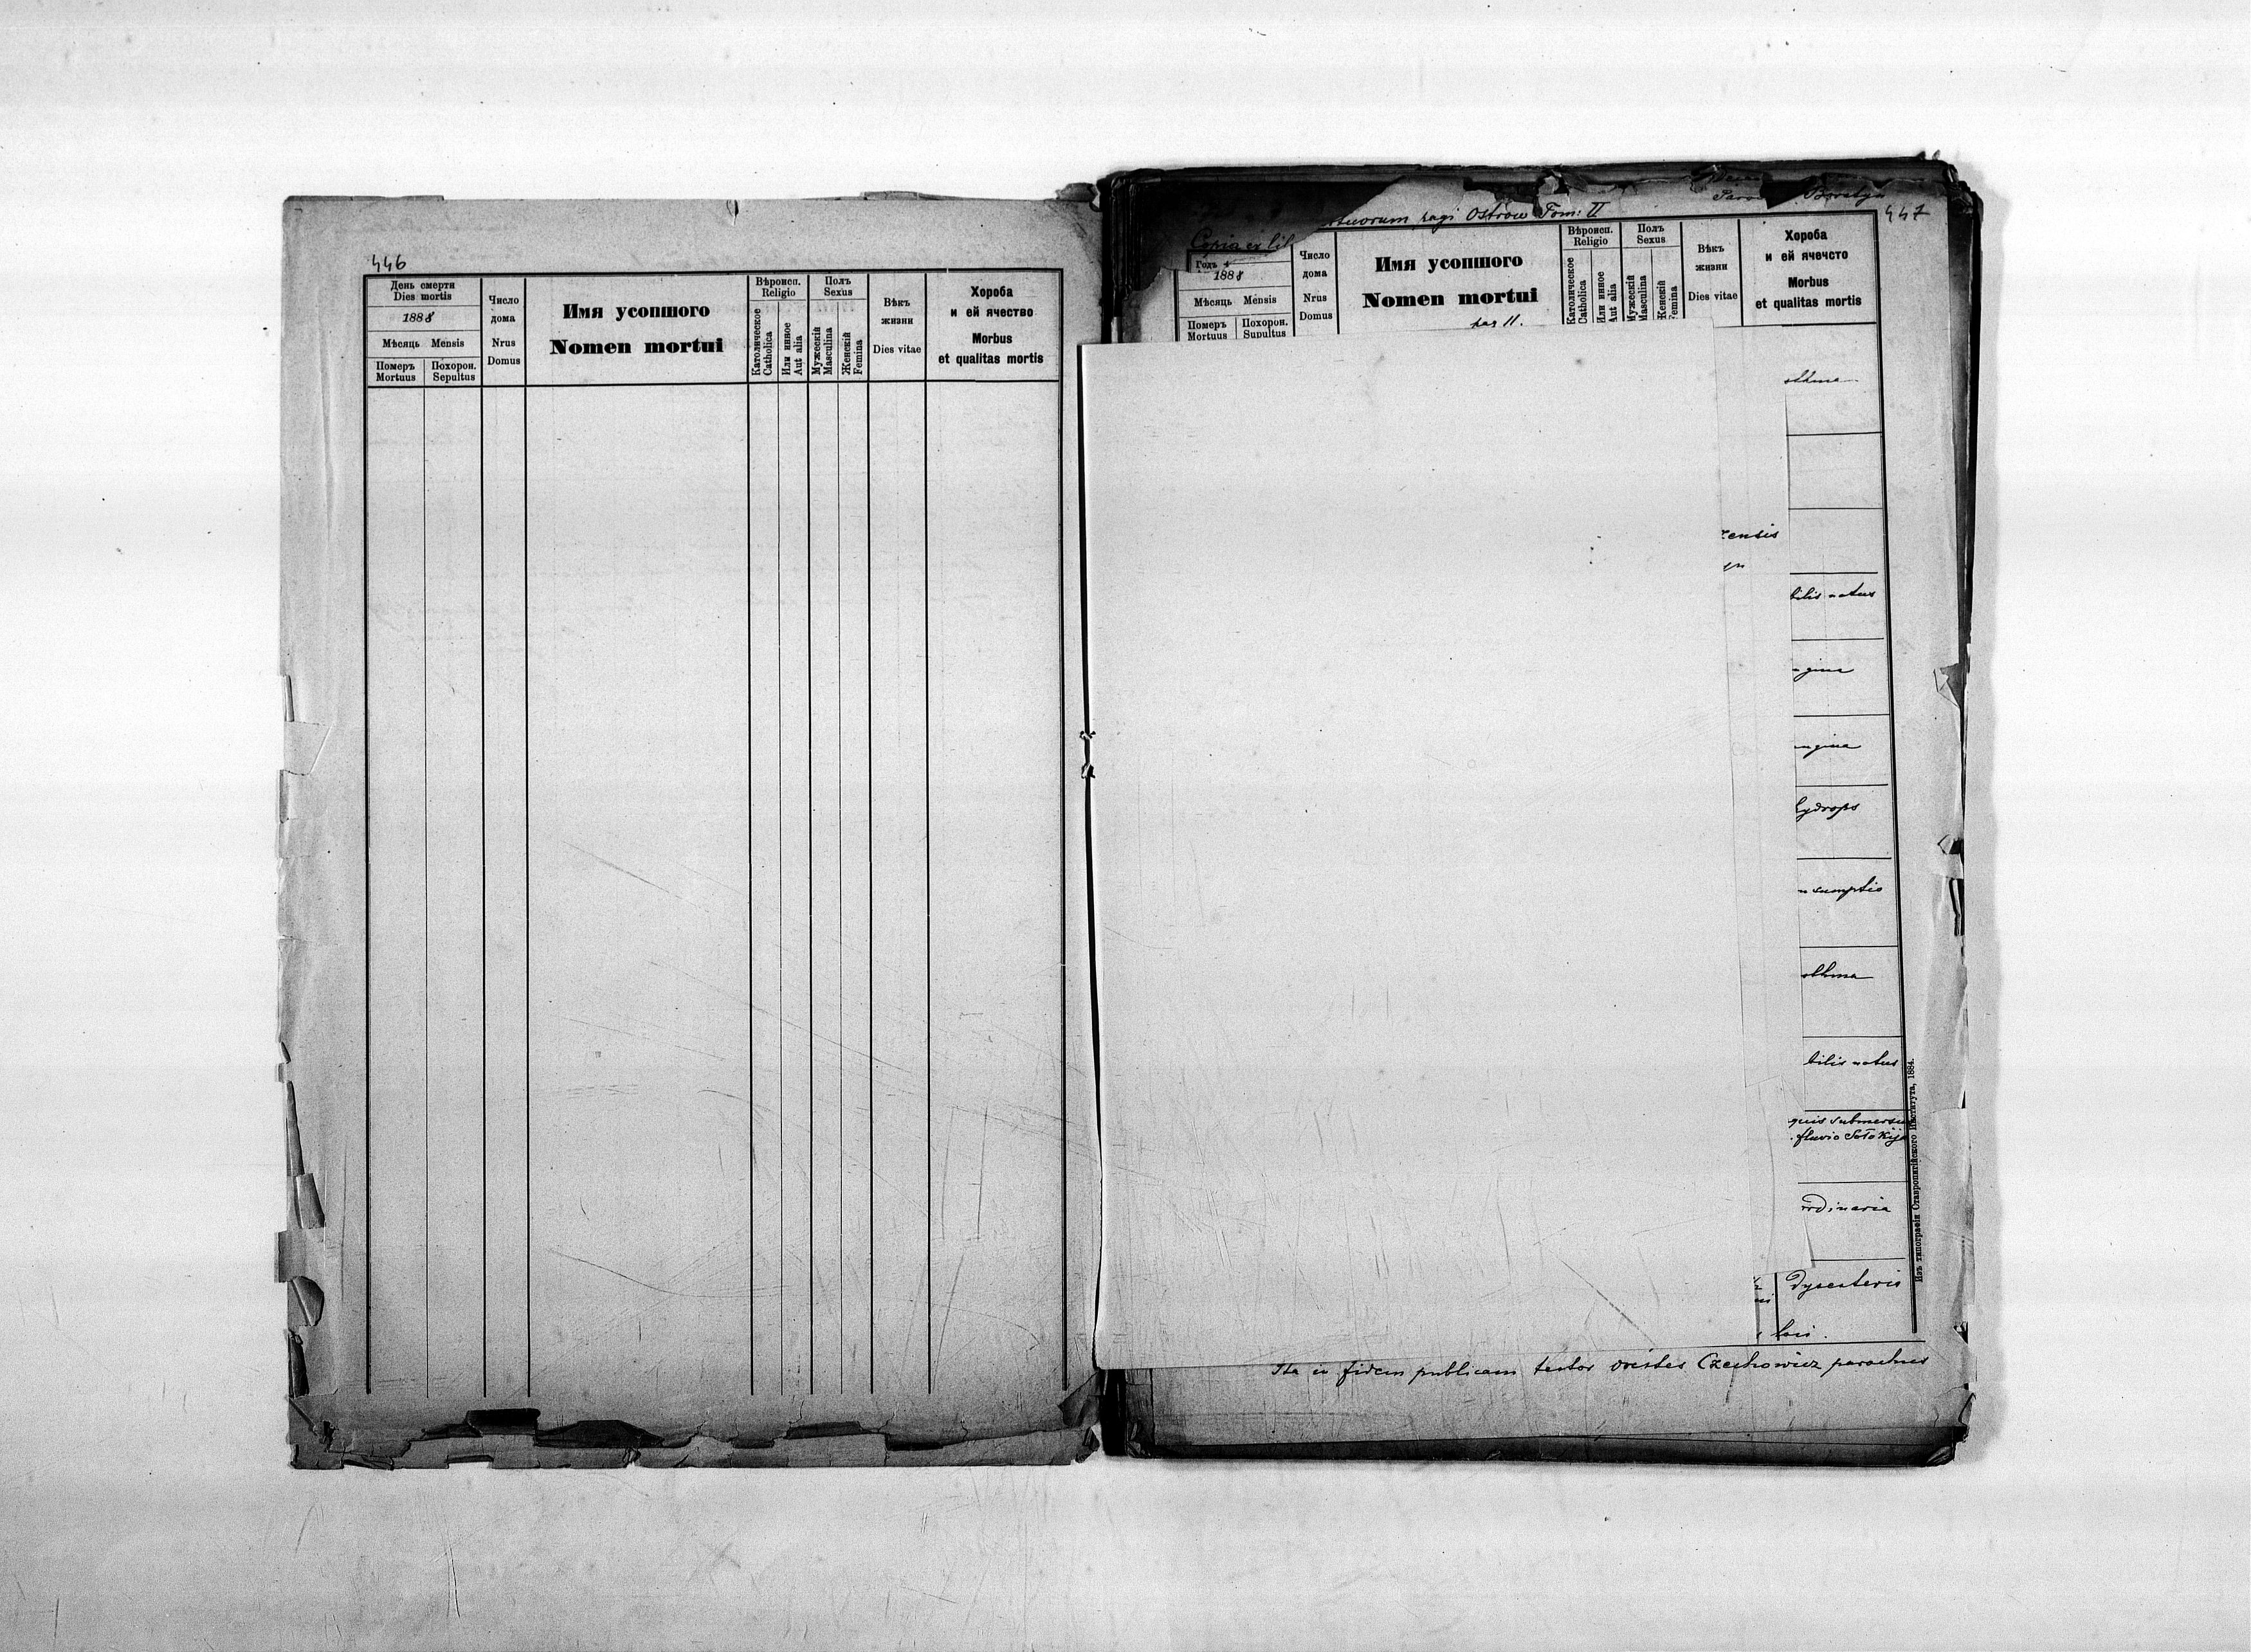 446
День смерти
Dies mortis
1888
Мѣсяць Mensis
Померъ
Mortuus
Похорон.
Sepultus
Число
дома
Nrus
Domus
Имя усопшого
Nomen mortui
Вѣроисп.
Religio
Католическое
Catholica
Или инное
Aut alia
Полъ
Sexus
Мужескій
Masculina
Женскій
Femina
Вѣкъ
жизни
Dies vitae
Хороба
и ей ячество
Morbus
et qualitas mortis
447
pagi Ostrow Tom: II
Copia ex lib
Годъ
1888
Мѣсяць Mensis
Померъ
Mortuus
Похорон.
Supultus
Число
дома
Nrus
Domus
Имя усопшого
Nomen mortui
pag 11.
Вѣроисп.
Religio
Католическое
Catholica
Или инное
Aut alia
Полъ
Sexus
Мужескій
Masculina
Женскій
Femina
Вѣкъ
жизни
Dies vitae
Хороба
и ей ячечсто
Morbus
et qualitas mortis
sthma
ensis
bilis natus
ngina
ngina
hydrops
nsumptio
sthma
bilis natus
quis submersu
fluvio Sołokija
rdinaria
dysenteria
Ita in fidem publicam testor Orestes Czechowicz parochus
Изъ типографіи Ставропигійского Института, 1884.